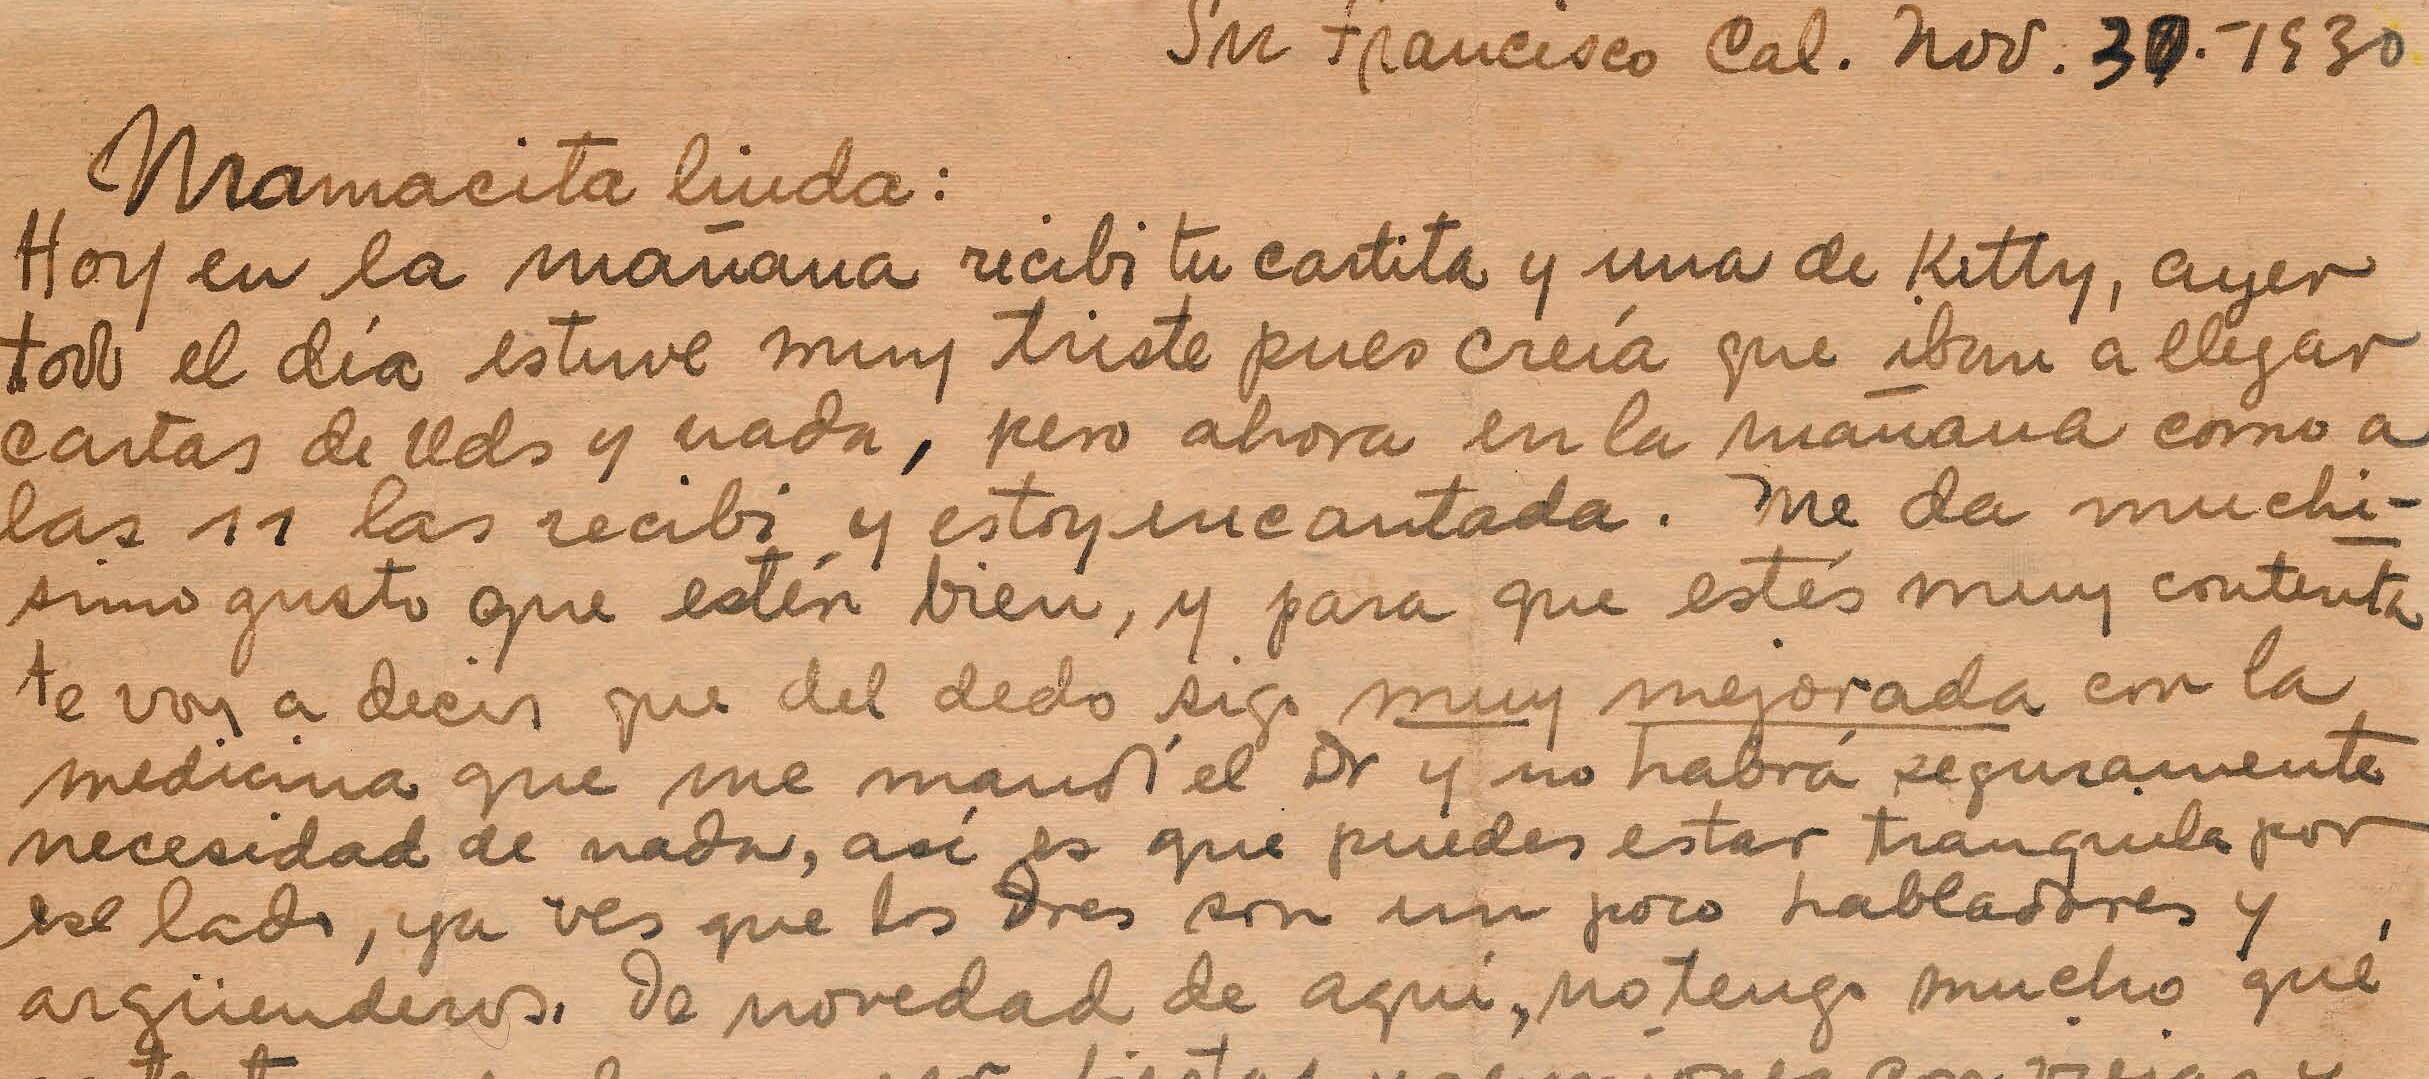 Sn Francisco Cal. Nov. 30.-1930
Mamacita linda:
Hoy en la mañana recibi tu cartita y una de Kitty, ayer
todo el día estuve muy triste pues creía que iban a llegar
cartas de Uds y nada, pero ahora en la mañana como a
las 11 las recibí y estoy encantada. Me da muchi-
simo gusto que estén bien, y para que estés muy contenta
te voy a decir que del dedo sigo muy mejorada con la
medicina que me mandó el Dr y no habrá seguramente
necesidad de nada, así es que puedes estar tranquila por
ese lado, ya ves que los Dres son un poco habladores y
argüenderos. De novedad de aquí, no tengo mucho qué